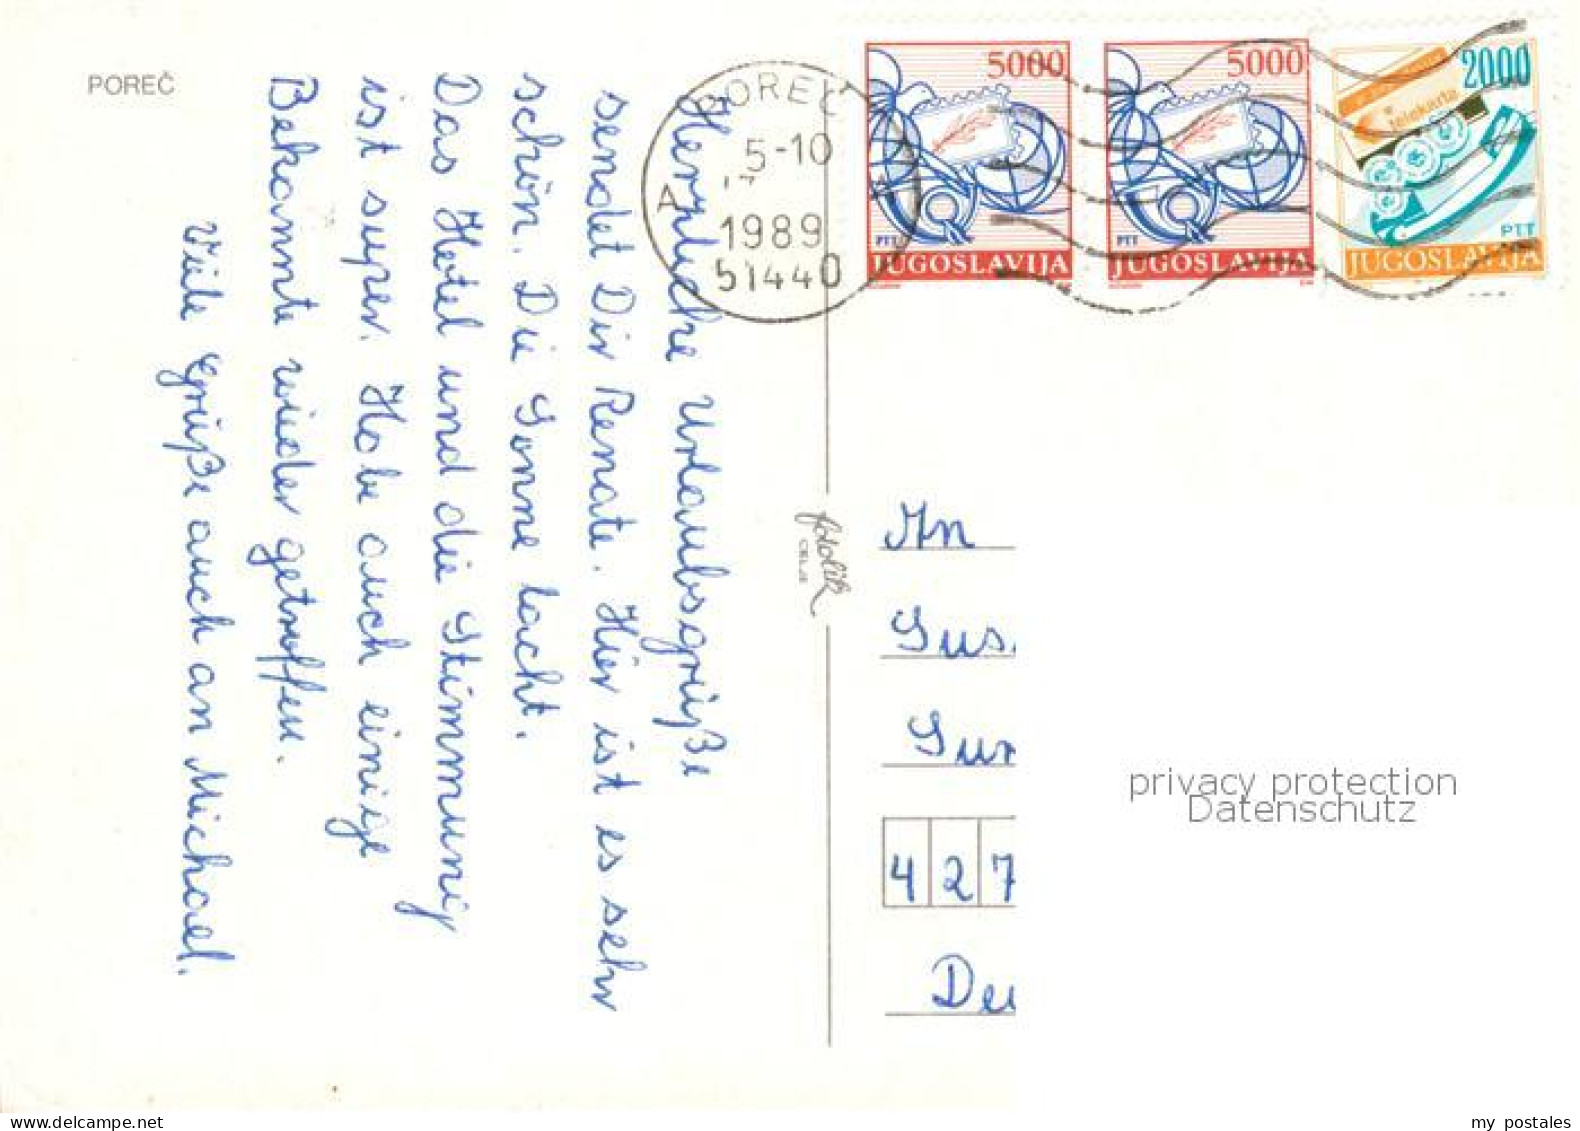 POREČ
Herzliche Urlaubsgrüße
sendet Dir Renate. Hier ist es sehr
schön. Die Sonne lacht.
Das Hotel und die Stimmung
ist super. Habe auch einige
Bekannte wieder getroffen.
Viele Grüße auch an Michael.
POREČ
5-10
1989
51440
A
5000
PTT
JUGOSLAVIJA
5000
PTT
JUGOSLAVIJA
2000
telekarta
PTT
JUGOSLAVIJA
fotolik
CELJE
An
Sus
Sur
427
Deu
privacy protection
Datenschutz
www.delcampe.net
my_postales